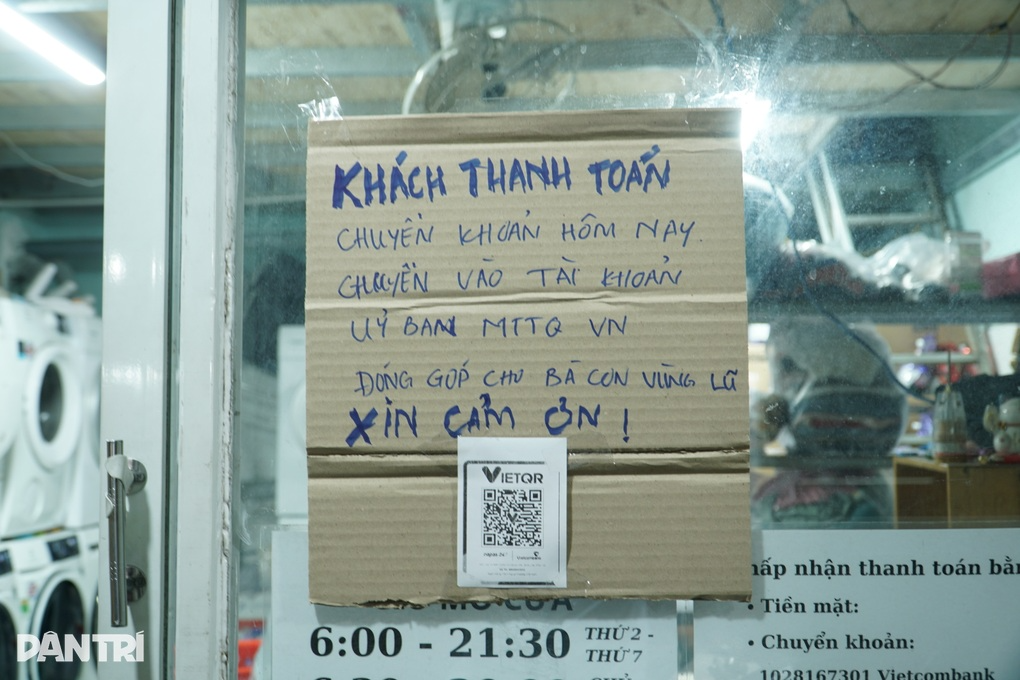 KHÁCH THANH TOÁN
CHUYỂN KHOẢN HÔM NAY.
CHUYỂN VÀO TÀI KHOẢN
UỶ BAN MTTQ VN
ĐÓNG GÓP CHO BÀ CON VÙNG LŨ
XIN CẢM ƠN !
VIETQR
napas 247
MỞ CỬA
6:00 - 21:30 THỨ 2 -
THỨ 7
hấp nhận thanh toán bằn
• Tiền mặt:
• Chuyển khoản:
1028167301 Vietcombank
DÂN TRÍ